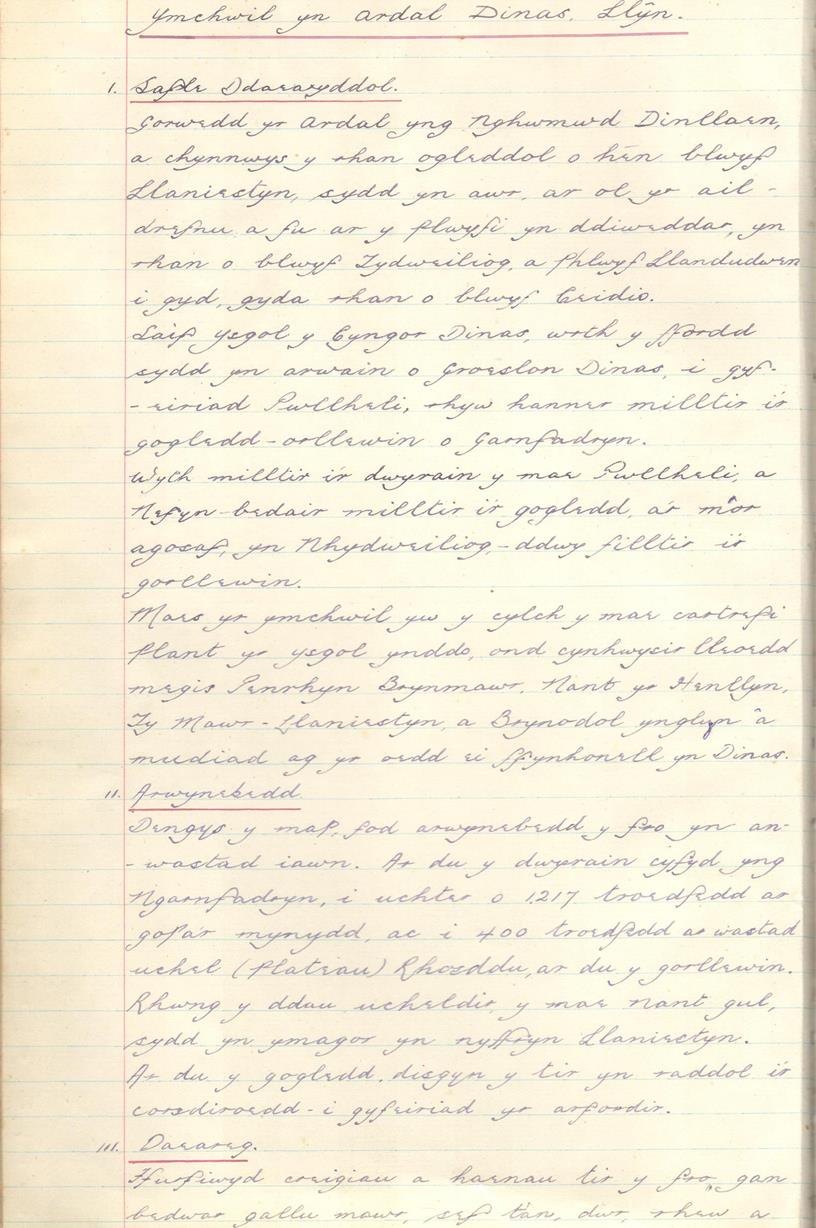 Ymchwil yn ardal Dinas, Llŷn.
I. Safle Ddaearyddol.
Gorwedd yr Ardal yng Nghwmwd Dinllaen,
a chynnwys y rhan ogleddol o hên blwyf
Llaniestyn, sydd yn awr, ar ol yr ail-
drefnu a fu ar y plwyfi yn ddiweddar, yn
rhan o blwyf Tydweiliog, a phlwyf Llandudwen
i gyd, gyda rhan o blwyf Ceidio.
Saif Ysgol y Cyngor Dinas, wrth y ffordd
sydd yn arwain o Groeslon Dinas, i gyf-
-eiriad Pwllheli, rhyw hanner milltir i'r
gogledd-orllewin o Garnfadryn.
Wyth milltir i'r dwyrain y mae Pwllheli, a
Nefyn-bedair milltir i'r gogledd, a'r môr
agosaf, yn Nhydweiliog,-ddwy filltir i'r
gorllewin.
Maes yr ymchwil yw y cylch y mae cartrefi
Plant yr ysgol ynddo, ond cynhwysir lleoedd
megis Penrhyn Brynmawr, Nant yr Henllyn,
Ty Mawr-Llaniestyn, a Brynodol ynglyn â
mudiad ag yr oedd ei ffynhonell yn Dinas.
II. Arwynebedd
Dengys y map, fod arwynebedd y fro yn an-
-wastad iawn. Ar du y dwyrain cyfyd yng
Ngarnfadryn, i uchter o 1,217 troedfedd ar
gopa'r mynydd, ac i 400 troedfedd ar wastad
uchel (plateau) Rhosddu, ar du y gorllewin.
Rhwng y ddau ucheldir, y mae nant gul,
sydd yn ymagor yn nyffryn Llaniestyn.
Ar du y gogledd, disgyn y tir yn raddol i'r
corsdiroedd-i gyfeiriad yr arfordir.
III. Daeareg.
Ffurfiwyd creigiau a haenau tir y fro, gan
bedwar gallu mawr, sef tân, dŵr, rhew a